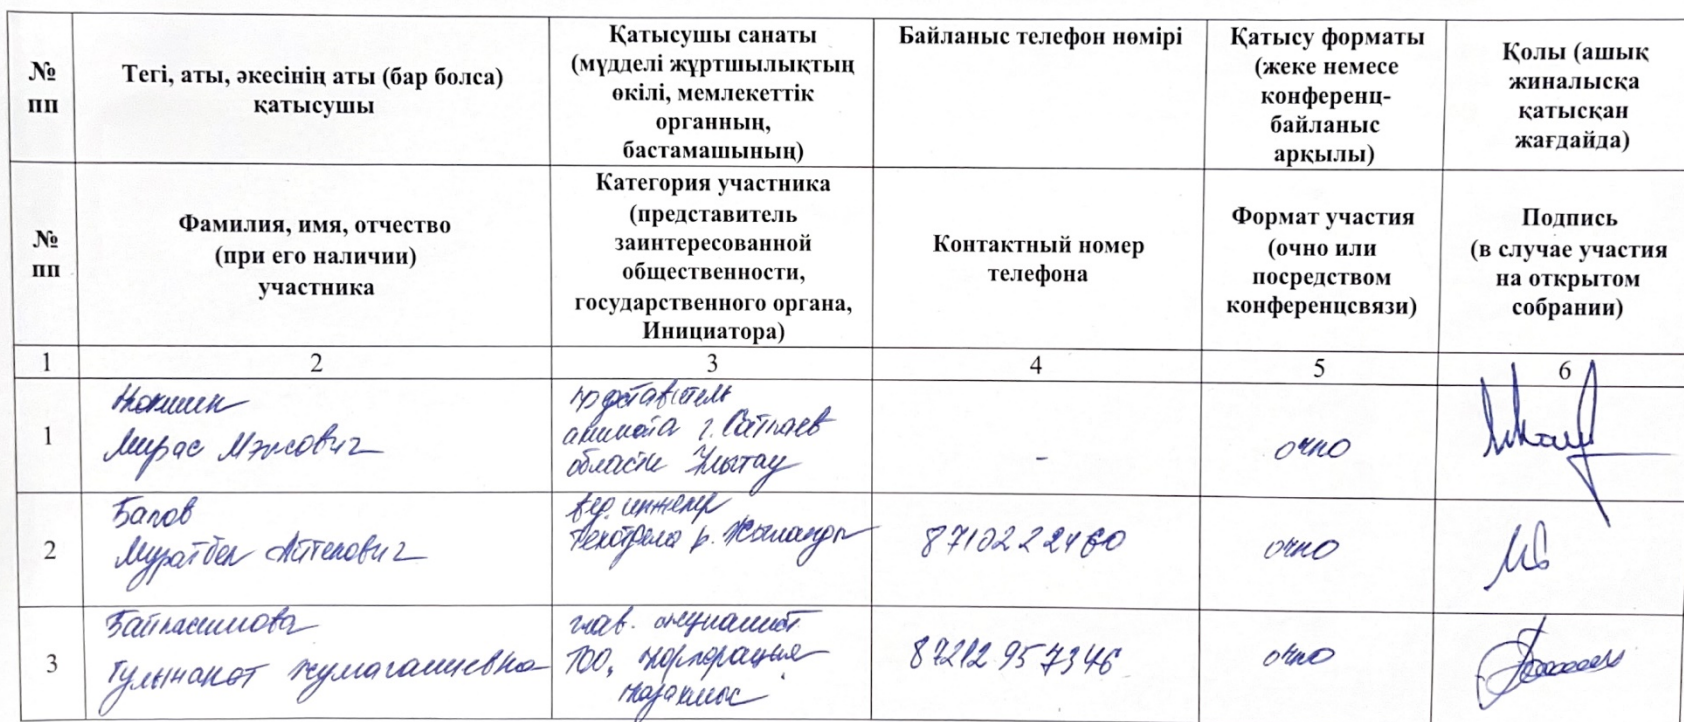 № пп
Тегі, аты, әкесінің аты (бар болса)
қатысушы
Қатысушы санаты
(мүдделі жұртшылықтың
өкілі, мемлекеттік
органның,
бастамашының)
Байланыс телефон нөмірі
Қатысу форматы
(жеке немесе
конференц-
байланыс
арқылы)
Қолы (ашық
жиналысқа
қатысқан
жағдайда)
№ пп
Фамилия, имя, отчество
(при его наличии)
участника
Категория участника
(представитель
заинтересованной
общественности,
государственного органа,
Инициатора)
Контактный номер
телефона
Формат участия
(очно или
посредством
конференцсвязи)
Подпись
(в случае участия
на открытом
собрании)
1 2 3 4 5 6
1
Мирас
представитель
акимата г. Сатпаев
области Улытау
-
очно
2
Бапов
Муратбек
вед. инженер
техотдела р. Жыланды
87102 2 24 60
очно
3
Байкасимова
Жумагалиевна
глав. специалист
ТОО, корпорация
Казахмыс
87212 957346
очно